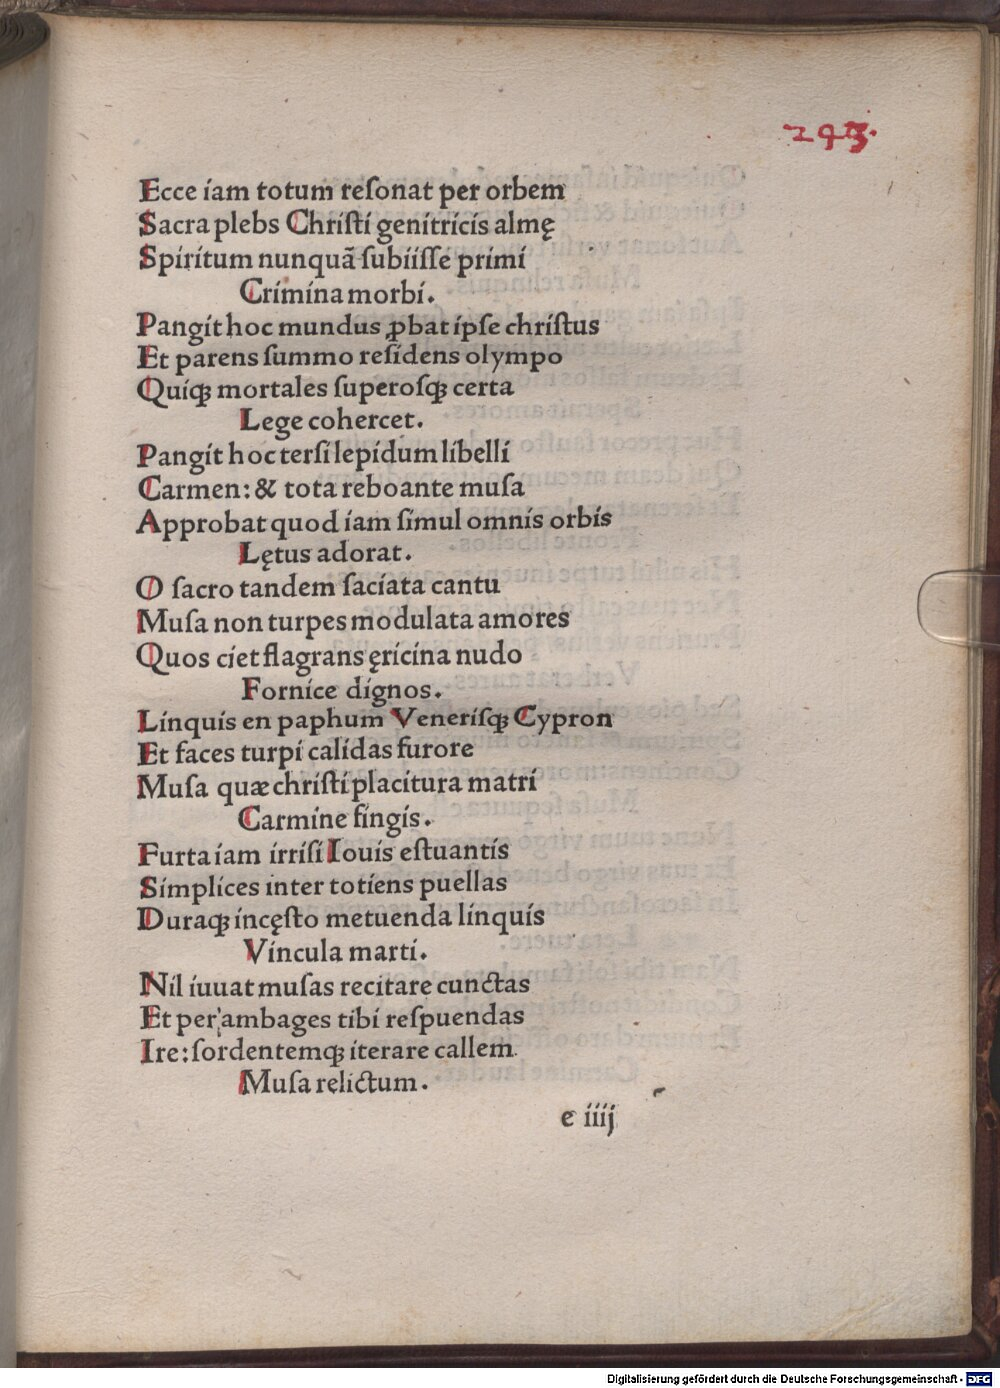 293.
Ecce iam totum reſonat per orbem
Sacra plebs Chriſti genitricis almę
Spiritum nunquã ſubiiſſe primi
Crimina morbi.
Pangit hoc mundus ꝓbat ipſe chriſtus
Et parens ſummo reſidens olympo
Quiqꝫ mortales ſuperoſqꝫ certa
Lege cohercet.
Pangit hoc terſi lepidum libelli
Carmen: & tota reboante muſa
Approbat quod iam ſimul omnis orbis
Lętus adorat.
O ſacro tandem ſaciata cantu
Muſa non turpes modulata amores
Quos ciet flagrans ęricina nudo
Fornice dignos.
Linquis en paphum Veneriſqꝫ Cypron
Et faces turpi calidas furore
Muſa quæ chriſti placitura matri
Carmine fingis.
Furta iam irriſi Iouis eſtuantis
Simplices inter totiens puellas
Duraqꝫ incęſto metuenda linquis
Vincula marti.
Nil iuuat muſas recitare cunctas
Et per ambages tibi reſpuendas
Ire: ſordentemqꝫ iterare callem
Muſa relictum.
e iiij
Digitalisierung gefördert durch die Deutsche Forschungsgemeinschaft - DFG